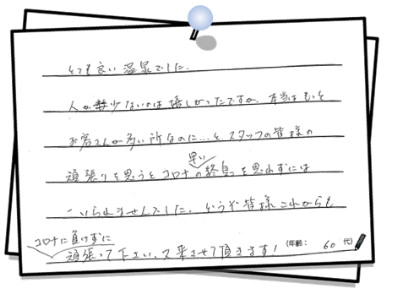 とても良い温泉でした。
人が少ないのは嬉しかったですが、本当はもっと
お客さんが多い所なのに…とスタッフの皆様の
頑張りを思うとコロナの早い終息を思わずには
いられませんでした。どうぞ皆様これからも
コロナに負けずに
頑張って下さい。又来させて頂きます! (年齢: 60 代)